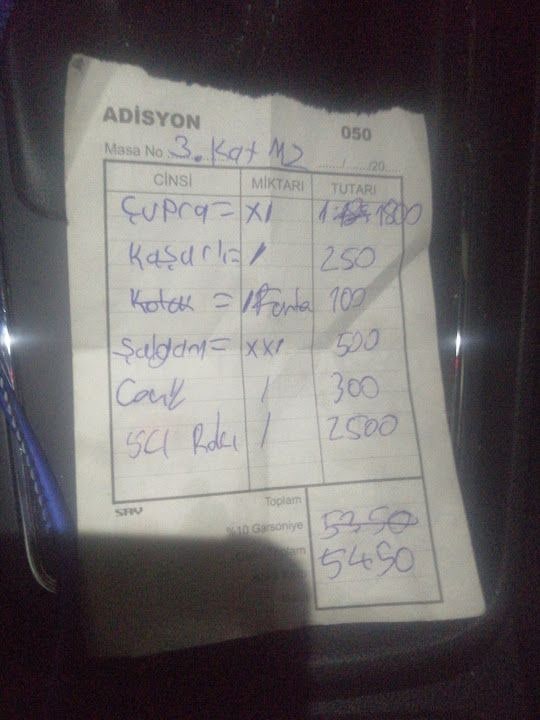 ADİSYON
050
Masa No 3. Kat M2 ....../....../20......
CİNSİ MİKTARI TUTARI
Çupra= X1 1800
Kaşarlı= 1 250
= 1 Fanta 100
Şalgam= XX1 500
Cacık 1 300
Rakı 1 2500
Toplam
%10 Garsoniye 5350
5450
SAY